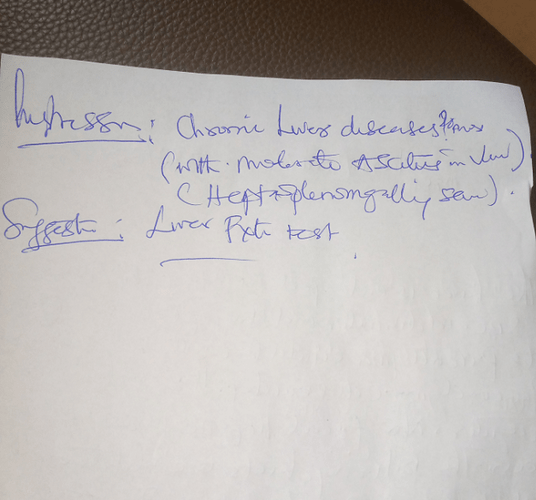 Impression: Chronic Liver diseases
(with moderate Ascitis in view)
(Heptosplenomgally seen).
Suggest: Liver test